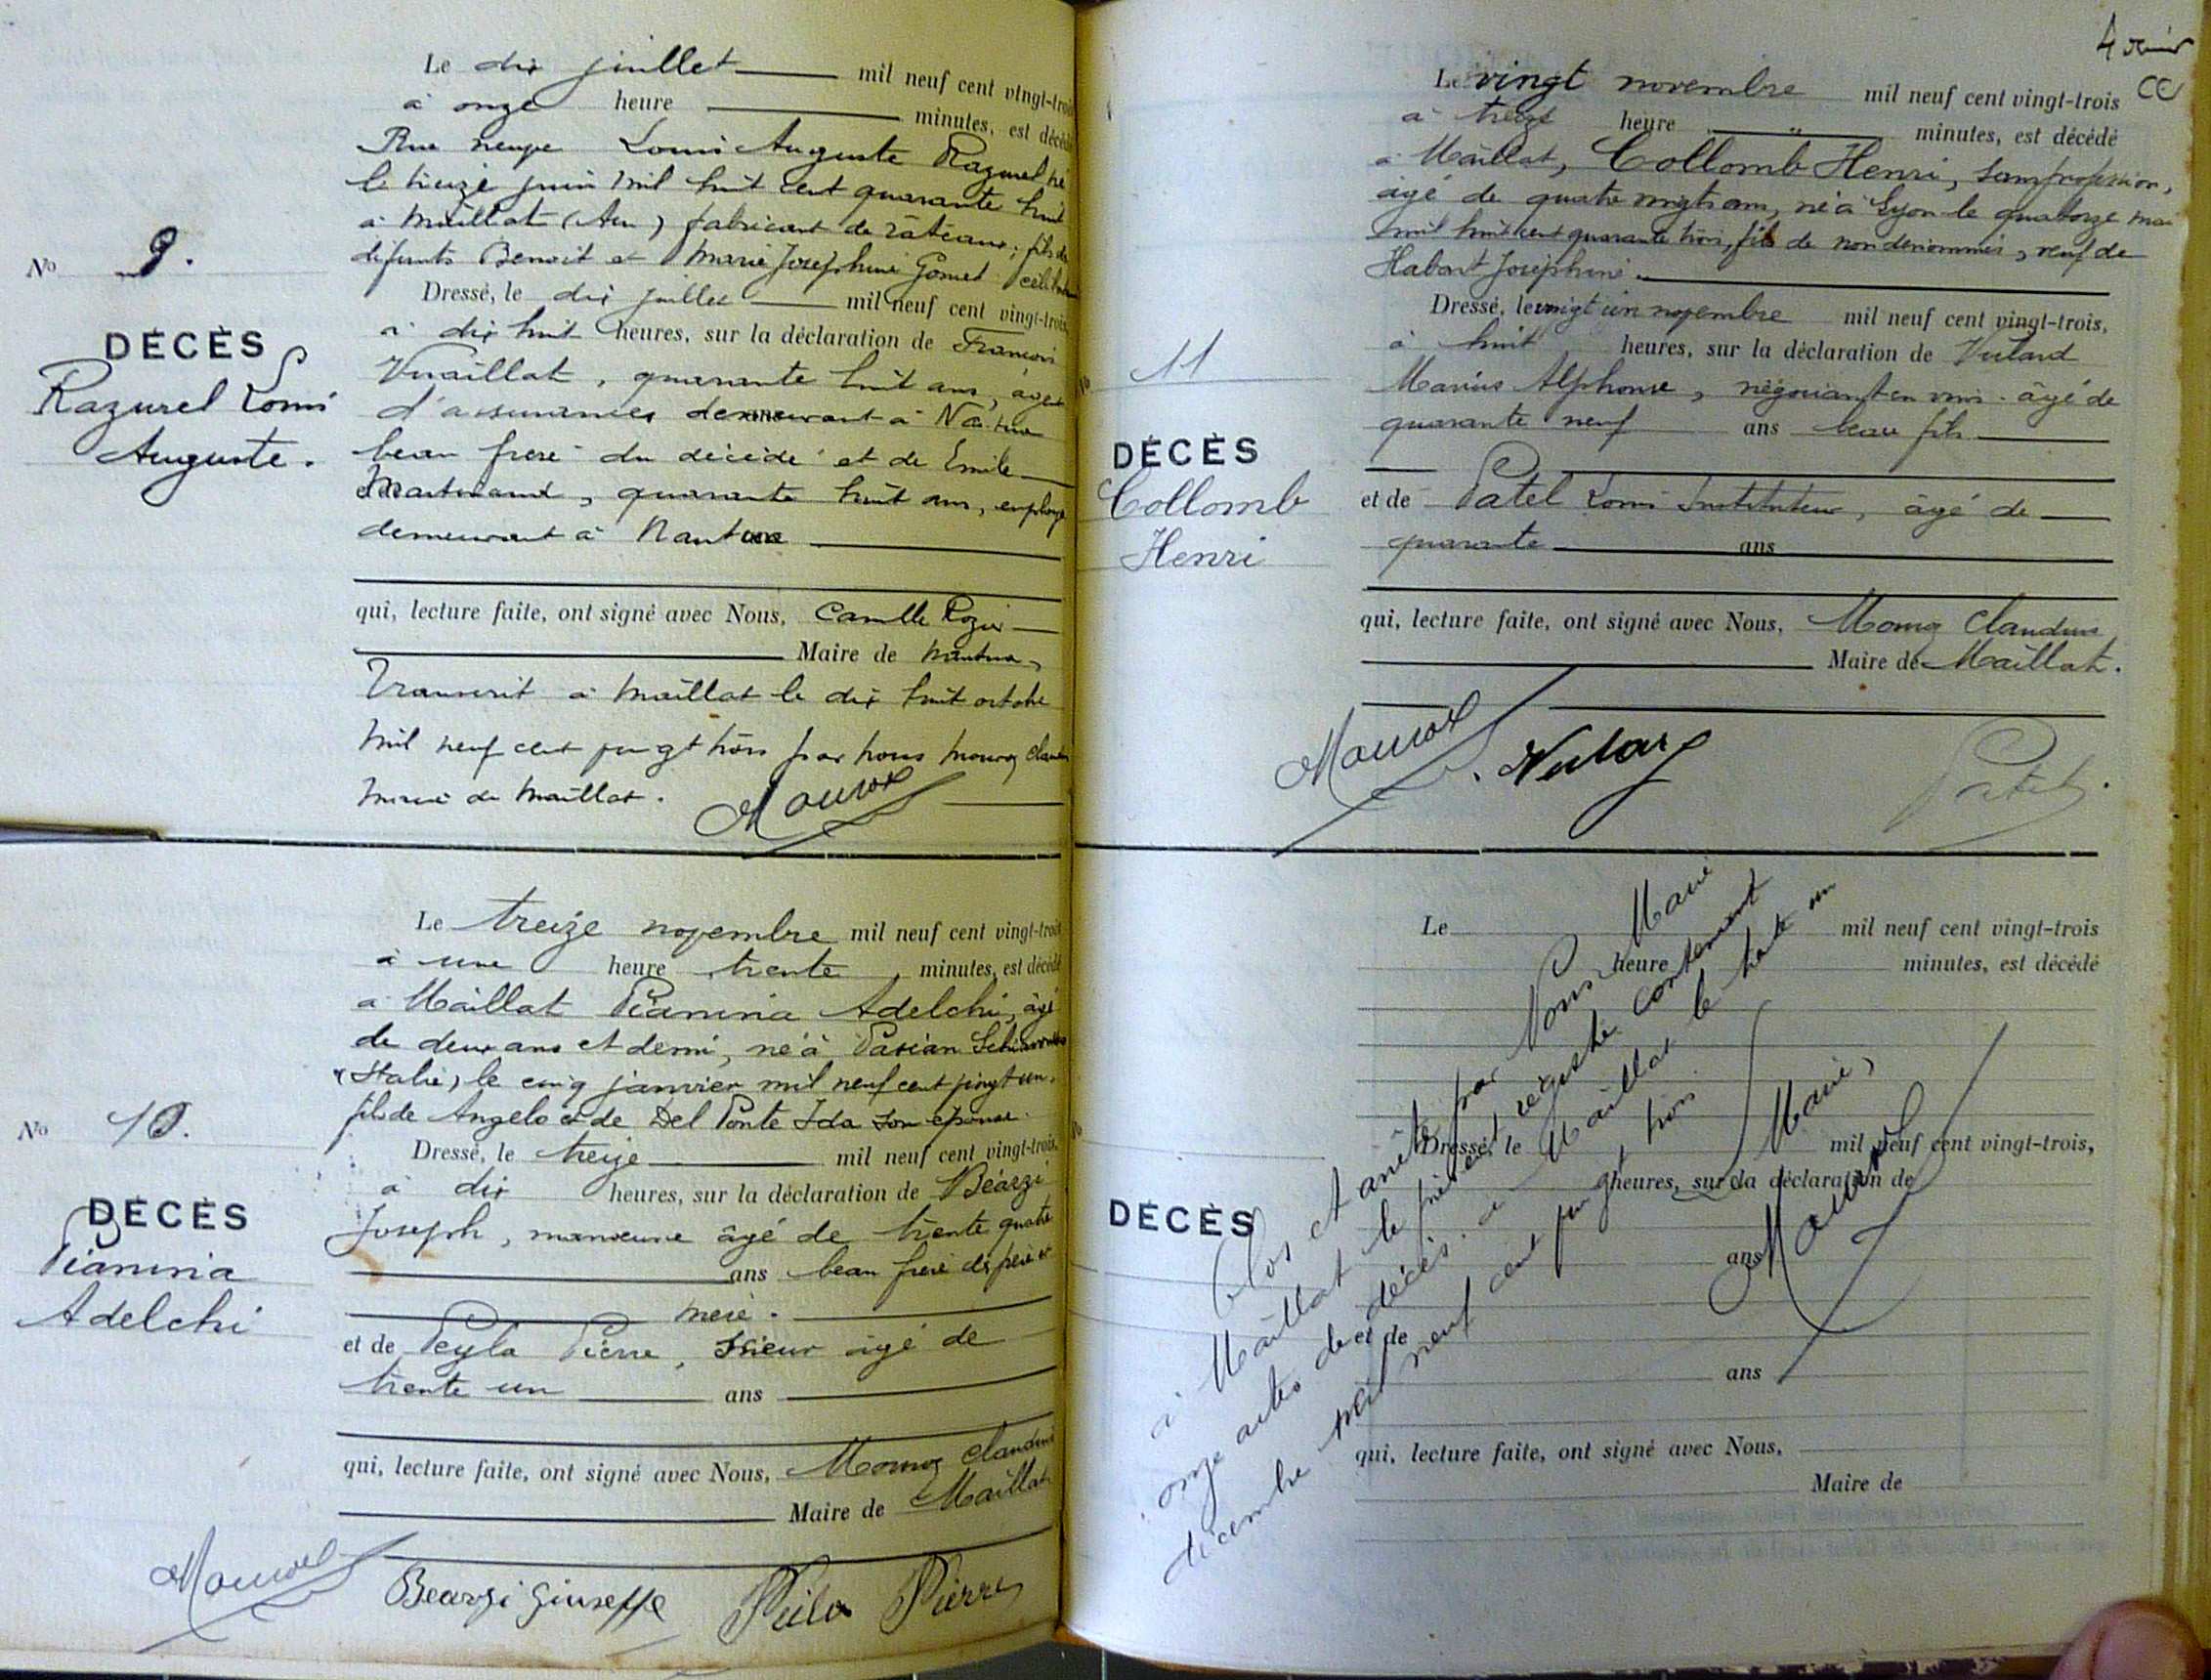 Le dix juillet mil neuf cent vingt-trois
à onze heure minutes, est décédé
Rue neuve Louis Auguste Razurel né
le treize juin mil huit cent quarante huit
à Maillat (Ain) fabricant de râteaux, fils de
défunts Benoit et Marie Josephine Gomet célibataire
Dressé, le dix juillet mil neuf cent vingt-trois,
à dix huit heures, sur la déclaration de François
Vuaillat, quarante huit ans, agent
d'assurances demeurant à Nantua
beau frère du décédé et de Emile
quarante huit ans, employé
demeurant à Nantua
qui, lecture faite, ont signé avec Nous, Camille Rozier
Maire de Nantua,
Transcrit à Maillat le dix huit octobre
mil neuf cent vingt trois par nous Claudius
Maire de Maillat.
No 9.
DÉCÈS
Razurel Louis
Auguste.
Le treize novembre mil neuf cent vingt-trois
à une heure trente minutes, est décédé
à Maillat Pianina Adelchi, âgé
de deux ans et demi, né à Pasian
(Italie) le cinq janvier mil neuf cent vingt un,
fils de Angelo et de Del Ponte Ida son épouse.
Dressé, le treize mil neuf cent vingt-trois,
à dix heures, sur la déclaration de Béarzi
Joseph, manœuvre âgé de trente quatre
ans beau frère des père et
mère.
et de Peyla Pierre, scieur âgé de
trente un ans
qui, lecture faite, ont signé avec Nous, Claudius
Maire de Maillat
Bearzi Giuseppe Peila Pierre
No 10.
DÉCÈS
Pianina
Adelchi
CC
Le vingt novembre mil neuf cent vingt-trois
à treize heure " minutes, est décédé
à Maillat, Collomb Henri, sans profession,
âgé de quatre vingts ans, né à Lyon le quatorze mai
mil huit cent quarante trois, fils de non dénommés, veuf de
Habart Joséphine.
Dressé, le vingt un novembre mil neuf cent vingt-trois,
à huit heures, sur la déclaration de Vulard
Marius Alphonse, négociant en vins âgé de
quarante neuf ans beau fils
et de Patel Louis Instituteur, âgé de
quarante ans
qui, lecture faite, ont signé avec Nous, Claudius
Maire de Maillat.
Patel.
11
DÉCÈS
Collomb
Henri
Le mil neuf cent vingt-trois
heure minutes, est décédé
Dressé, le mil neuf cent vingt-trois,
heures, sur la déclaration de
ans
et de
ans
qui, lecture faite, ont signé avec Nous,
Maire de
DÉCÈS
Clos et arrêté par Nous Maire
à Maillat le présent registre contenant
onze actes de décès. à Maillat le trente un
décembre mil neuf cent vingt trois.
Maire,